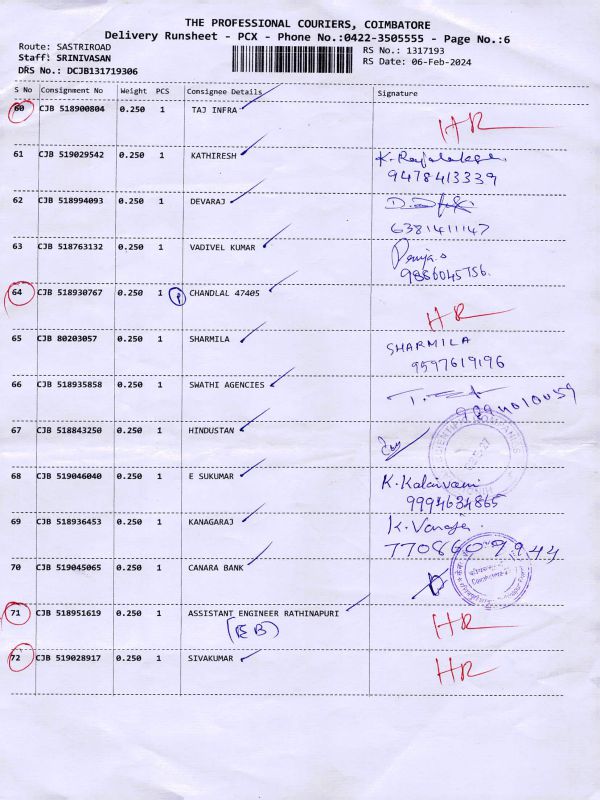 THE PROFESSIONAL COURIERS, COIMBATORE
Delivery Runsheet - PCX - Phone No.:0422-3505555 - Page No.:6
Route: SASTRIROAD RS No.: 1317193
Staff: SRINIVASAN RS Date: 06-Feb-2024
DRS No.: DCJB131719306
S No Consignment No Weight PCS Consignee Details Signature
60 CJB 518900804 0.250 1 TAJ INFRA
HR
61 CJB 519029542 0.250 1 KATHIRESH
9478413339
62 CJB 518994093 0.250 1 DEVARAJ
6381411147
63 CJB 518763132 0.250 1 VADIVEL KUMAR
9886045756
64 CJB 518930767 0.250 1 P CHANDLAL 47405
HR
65 CJB 80203057 0.250 1 SHARMILA SHARMILA
9597619196
66 CJB 518935858 0.250 1 SWATHI AGENCIES
67 CJB 518843250 0.250 1 HINDUSTAN
68 CJB 519046040 0.250 1 E SUKUMAR K. Kalaivani
9994634865
69 CJB 518936453 0.250 1 KANAGARAJ K. Vanaja
7708609944
70 CJB 519045065 0.250 1 CANARA BANK
71 CJB 518951619 0.250 1 ASSISTANT ENGINEER RATHINAPURI HR
(EB)
72 CJB 519028917 0.250 1 SIVAKUMAR HR